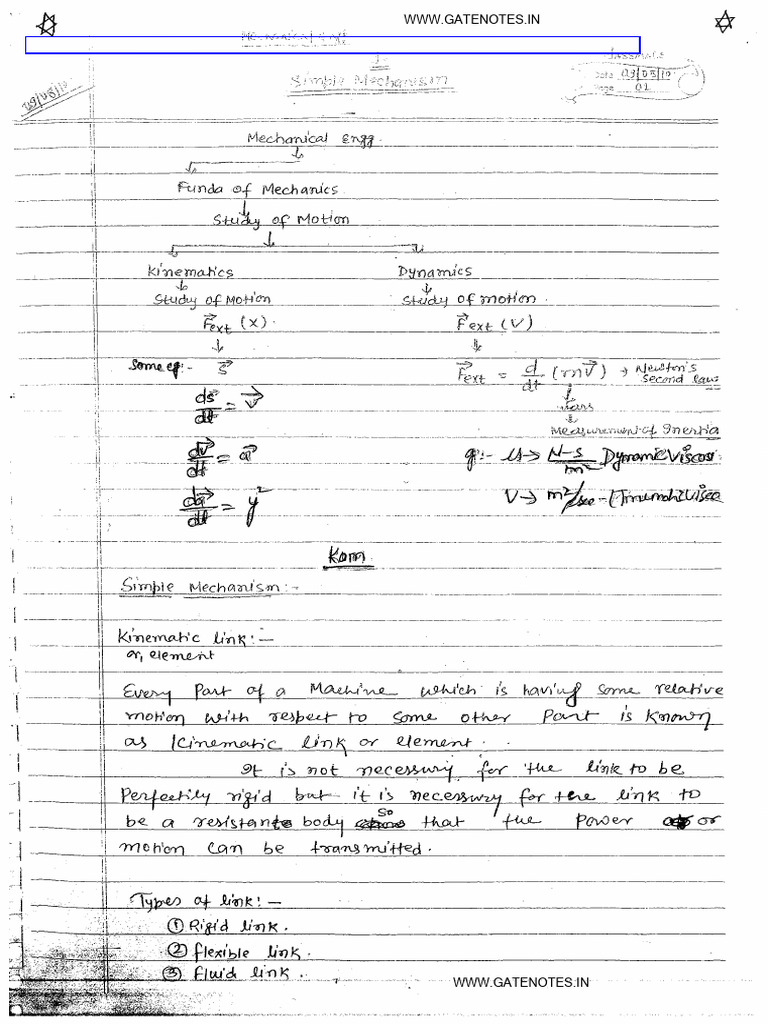 WWW.GATENOTES.IN
Mechanical Engg
1
Simple Mechanism
Date 09/08/10
Page 01
09/08/10
Mechanical Engg.
↓
Funda of Mechanics
↓
Study of Motion
↓
Kinematics Dynamics
↓ ↓
Study of Motion Study of motion.
F⃗ext (X). F⃗ext (V)
↓ ↓
Some eg:- S⃗ F⃗ext = d/dt (mV⃗) → Newton's Second law
ds⃗/dt = V⃗
Measurement of Inertia
dv⃗/dt = a⃗ eg:- μ → N-s/m² Dynamic Viscosi
da⃗/dt = y² V → m²/sec
Kom
Simple Mechanism:-
Kinematic link:-
or, element
Every Part of a Machine which is having some relative
motion with respect to some other Part is known
as Kinematic link or element.
It is not necessury for the link to be
Perfectily rigid but it is necessury for the link to
be a resistante body so that the Power or
motion can be transmitted.
Types of link:-
① Rigid link.
② flexible link.
③ Fluid link.
WWW.GATENOTES.IN